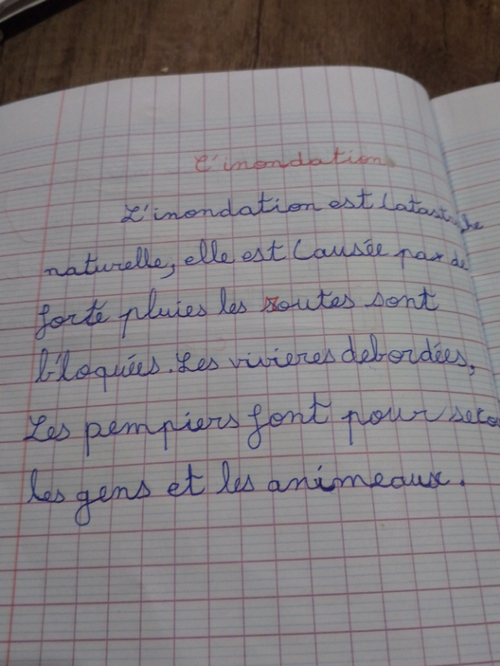 L'inondation
L'inondation est Catastrophe
naturelle, elle est Causée par de
forte pluies les routes sont
bloquées. Les vivieres debordées,
Les pempiers font pour seco
les gens et les animeaux.